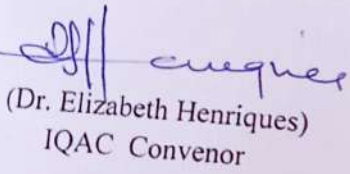 (Dr. Elizabeth Henriques)
IQAC Convenor